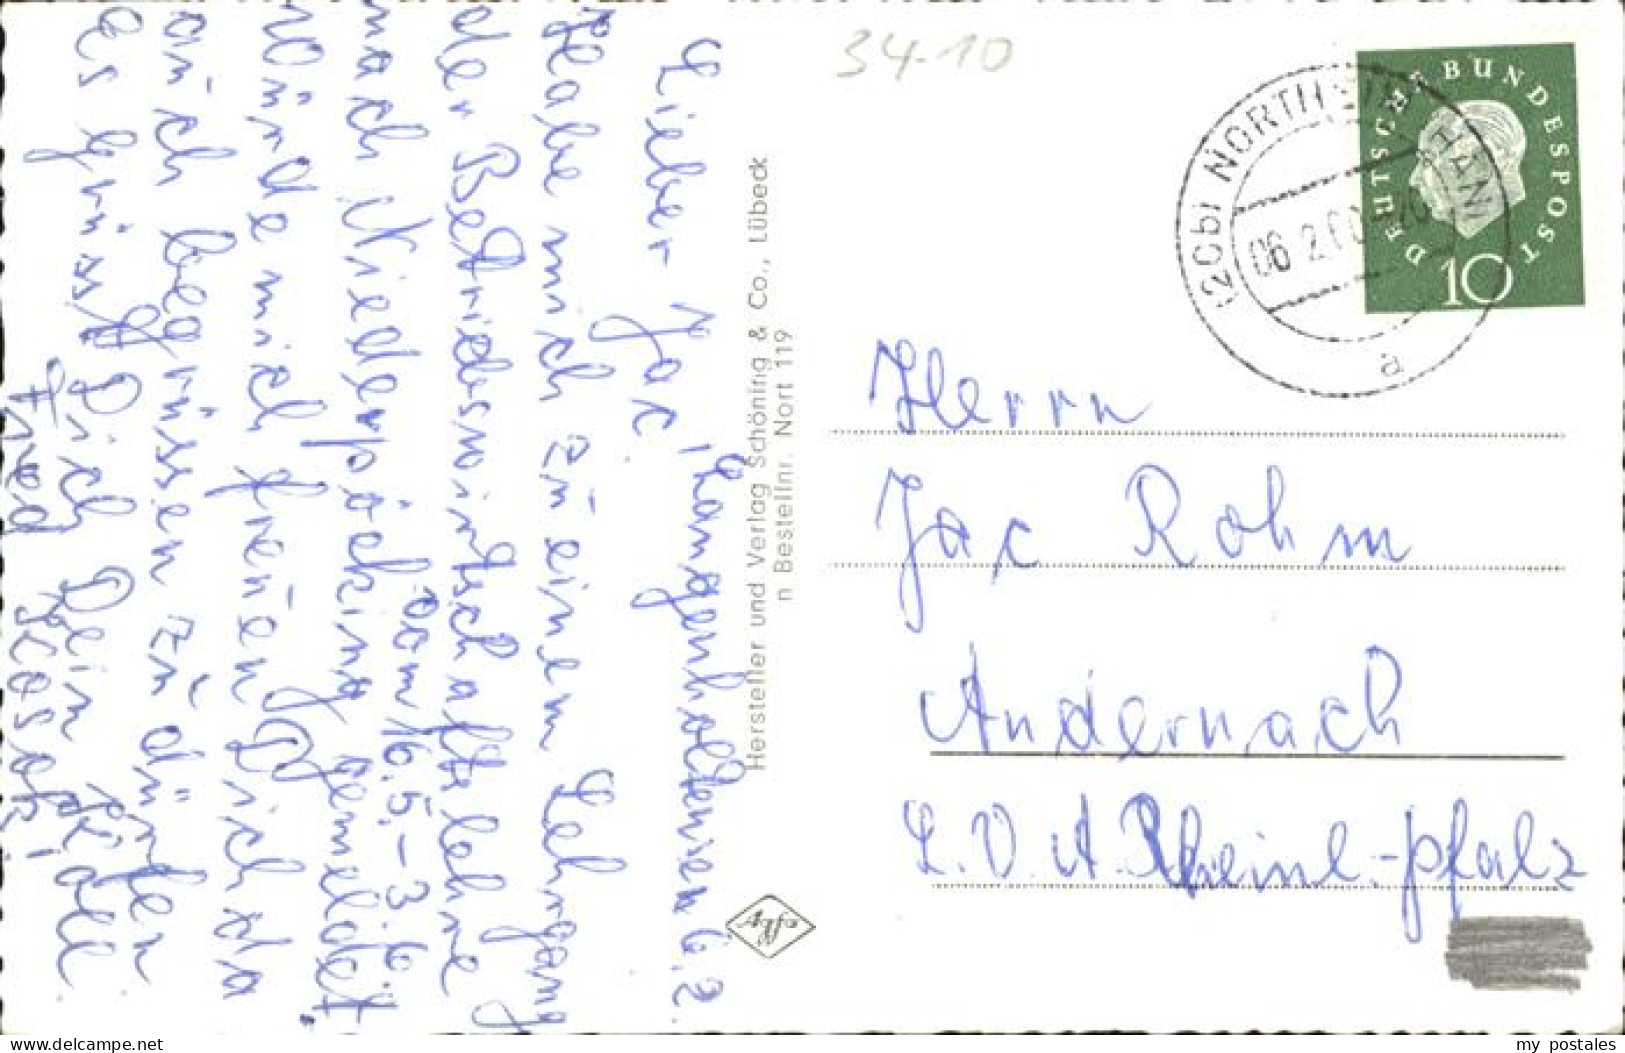 34-10
DEUTSCHE BUNDESPOST
10
(20b) NORTHEIM (HAN)
06.2.60
a
Herrn
Jac Rohm
Andernach
L.V.A. Rheinl.-pfalz
Hersteller und Verlag Schöning & Co., Lübeck
n Bestellnr. Nort 119
Agfa
6.2.
Lieber Jac.
Habe mich zu einem Lehrgang
der Betriebswirtschaftslehre
vom 16.5.-3.6.
nach Niederpöcking gemeldet.
Würde mich freuen Dich da
auch begrüssen zu dürfen
Es grüsst Dich Dein
Fred
my postales
delcampe.net